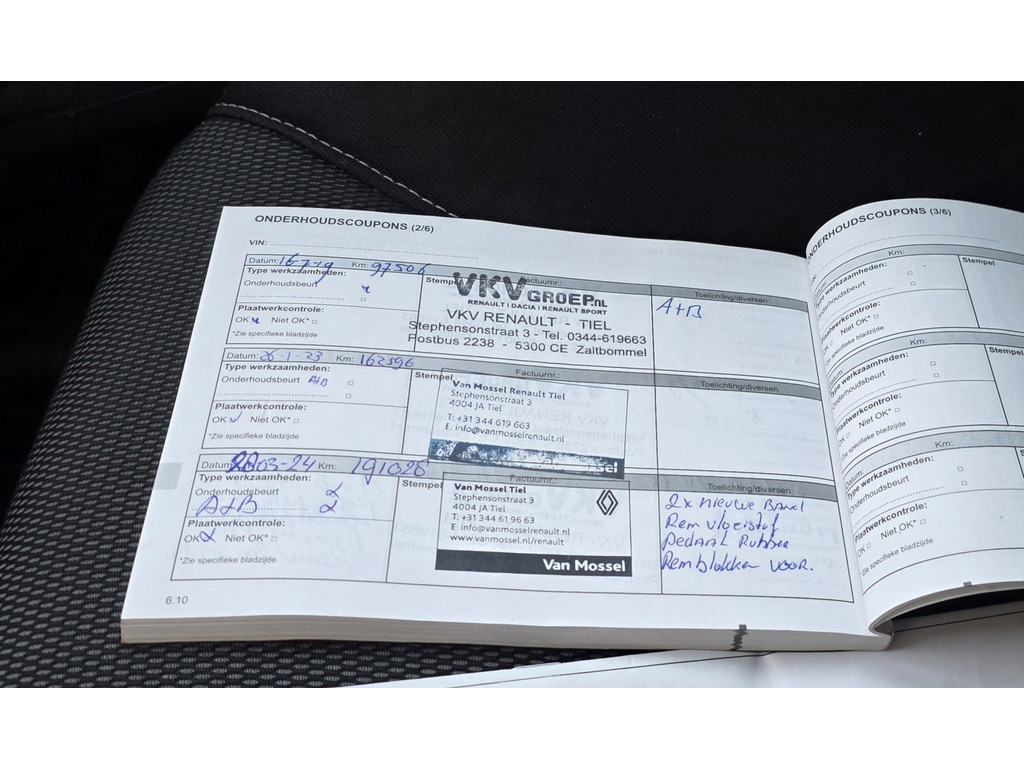 ONDERHOUDSCOUPONS (2/6)
VIN:
Datum: 16-7-19 Km: 97506
Type werkzaamheden:
Onderhoudsbeurt
Plaatwerkcontrole:
OK Niet OK*
*Zie specifieke bladzijde
Stempel Factuurnr.:
VKV GROEP.NL
RENAULT I DACIA I RENAULT SPORT
VKV RENAULT - TIEL
Stephensonstraat 3 - Tel. 0344-619663
Postbus 2238 - 5300 CE Zaltbommel
Toelichting/diversen
A+B
Datum: 26-1-23 Km: 162596
Type werkzaamheden:
Onderhoudsbeurt A+B
Plaatwerkcontrole:
OK Niet OK*
*Zie specifieke bladzijde
Stempel Factuurnr.:
Van Mossel Renault Tiel
Stephensonstraat 3
4004 JA Tiel
T: +31 344 619 663
E: info@vanmosselrenault.nl
Toelichting/diversen
Datum: 20-03-24 Km: 191028
Type werkzaamheden:
Onderhoudsbeurt
A+B
Plaatwerkcontrole:
OK Niet OK*
*Zie specifieke bladzijde
Stempel Factuurnr.:
Van Mossel Tiel
Stephensonstraat 3
4004 JA Tiel
T: +31 344 61 96 63
E: info@vanmosselrenault.nl
www.vanmosselrenault.nl/renault
Van Mossel
Toelichting/diversen
2x nieuwe Band
Rem vloeistof
Pedaal Rubber
Remblokken voor.
6.10
ONDERHOUDSCOUPONS (3/6)
Type werkzaamheden:
Onderhoudsbeurt
Plaatwerkcontrole:
OK Niet OK*
*Zie specifieke bladzijde
Stempel
Km:
Type werkzaamheden:
Onderhoudsbeurt
Plaatwerkcontrole:
OK Niet OK*
*Zie specifieke bladzijde
Stempel
Km:
Type werkzaamheden:
Onderhoudsbeurt
Plaatwerkcontrole:
OK Niet OK*
*Zie specifieke bladzijde
Stempel